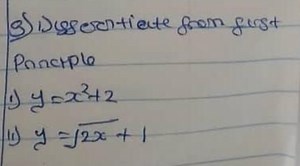 g) Differentiate from first
Principle
i) y = x² + 2
ii) y = √2x + 1